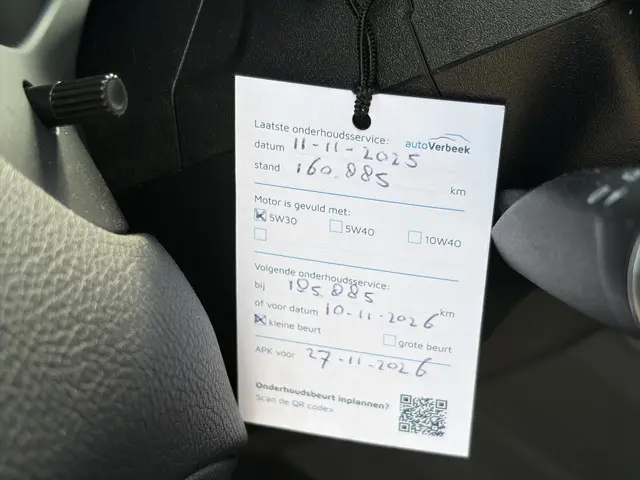 Laatste onderhoudsservice:
autoVerbeek
datum 11-11-2025
stand 160.885 km
Motor is gevuld met:
5W30 5W40 10W40
Volgende onderhoudsservice:
bij 185.885 km
of voor datum 10-11-2026
kleine beurt grote beurt
APK vóór 27-11-2026
Onderhoudsbeurt inplannen?
Scan de QR code>